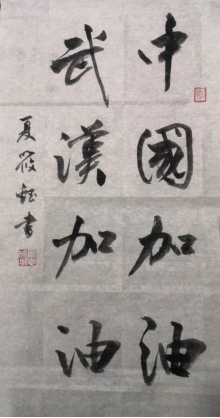 中國加油
武漢加油
夏筱鈺書